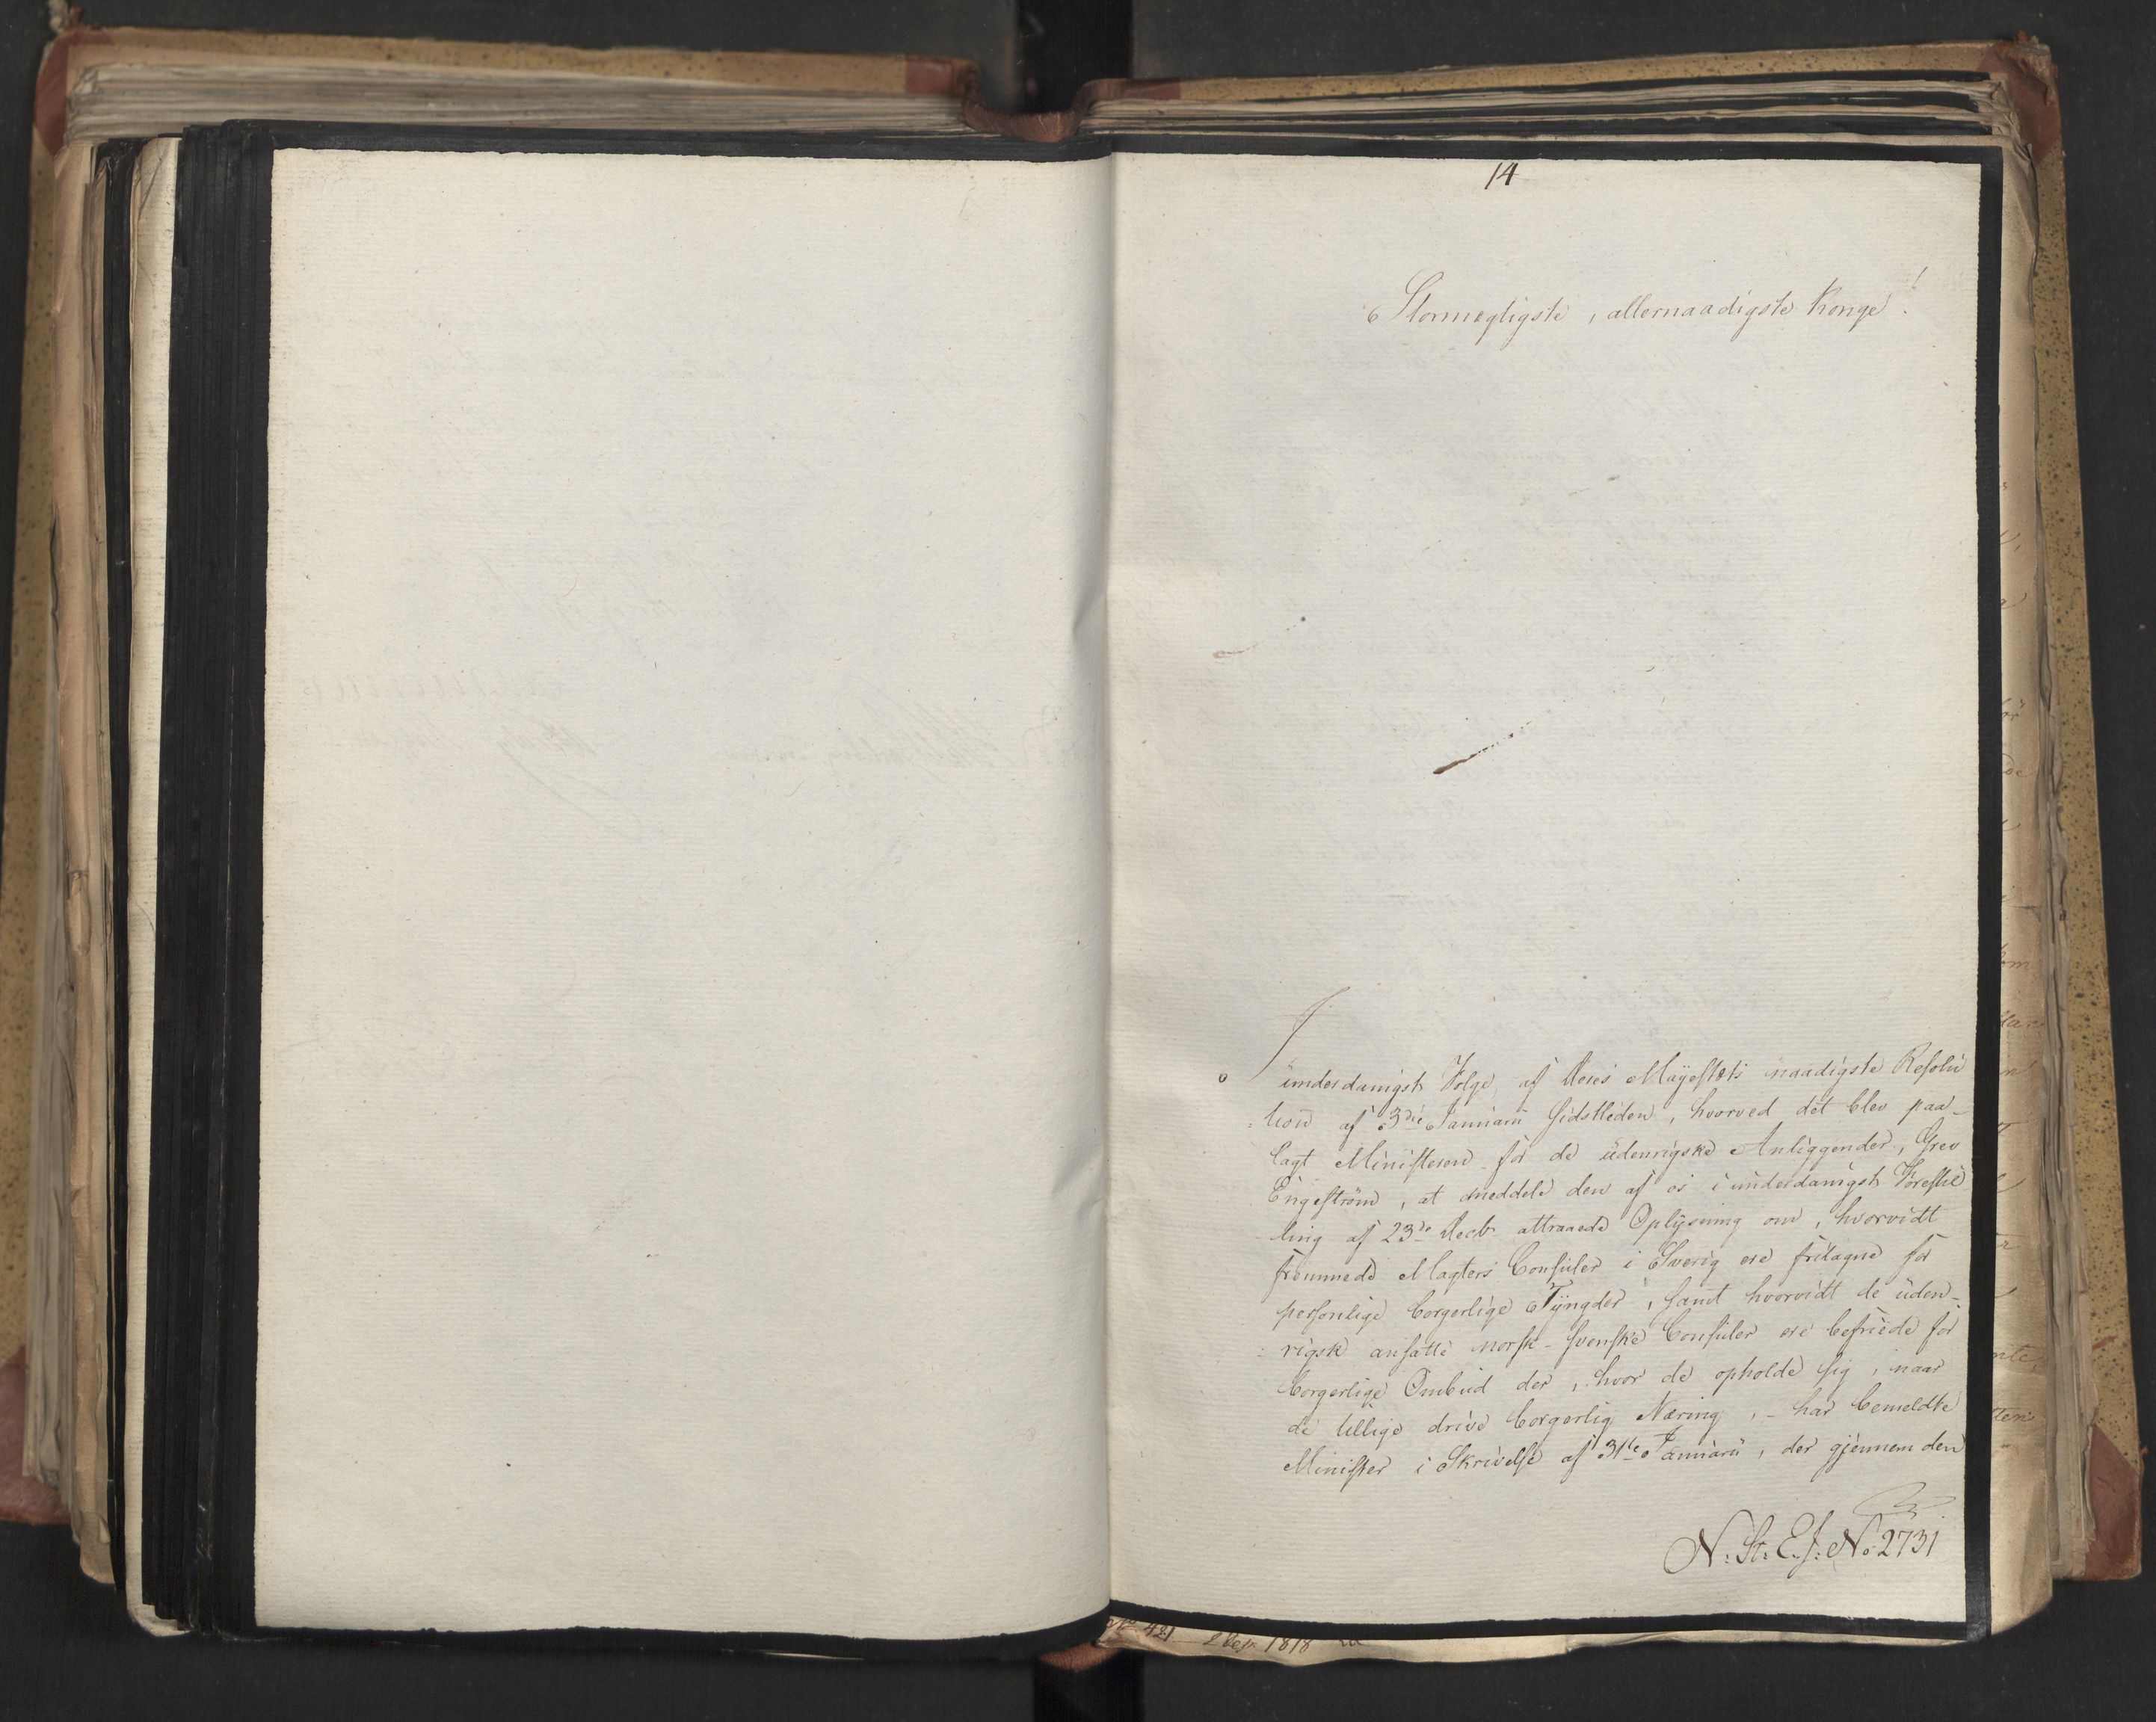 14
Stormægtigste, allernaadigste Konge!
I
underdanigst Følge af Deres Mayestæts naadigste Resolu
tion af 3die Januarii sidstleden, hvorved det blev paa-
lagt Ministeren for de udenrigske Anliggender, Grev
Engeström, at meddele den af os i underdanigst Forestil
ling af 23de Decb. attraaede Oplysning om, hvorvidt
fremmede Magters Consuler i Sverig ere fritagne for
personlige borgerlige Tyngder, samt hvorvidt de uden-
rigsk ansatte norsk-svenske Consuler ere befriede for
borgerlige Ombud der, hvor de opholde sig, naar
de tillige drive borgerlig Næring, - har bemeldte
Minister i Skrivelse af 31te Januarii, der gjennem den
N: St: E. J: No 2731
421 1818